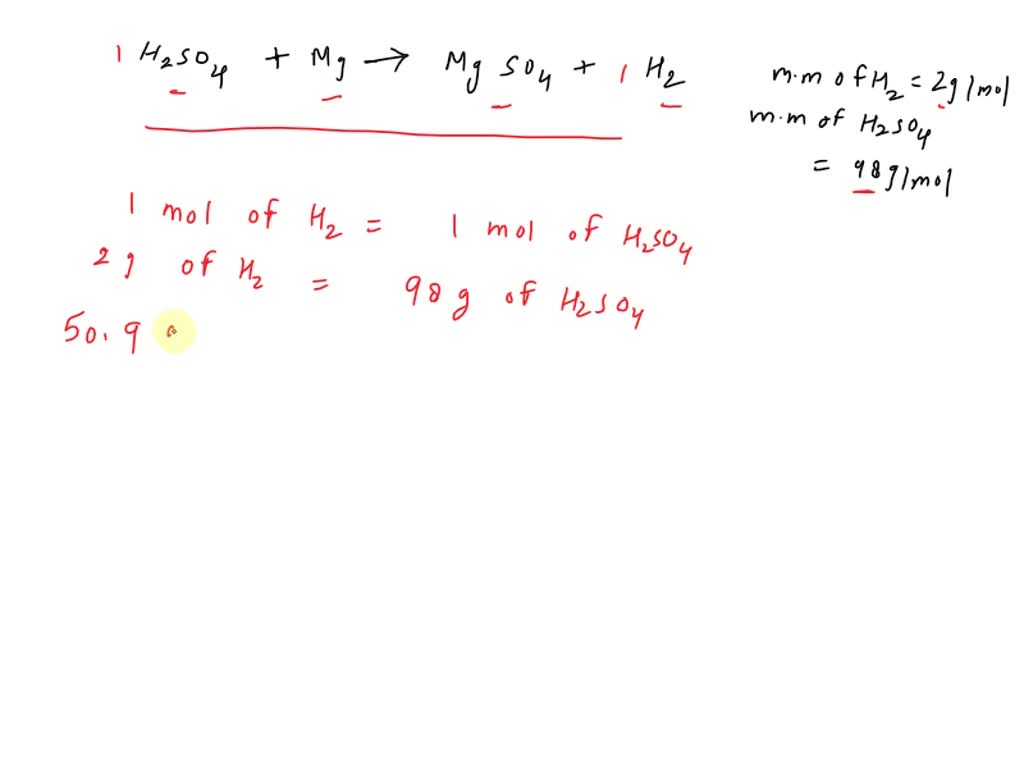 1 H₂SO₄ + Mg → Mg SO₄ + 1 H₂
m.m of H₂ = 2g/mol
m.m of H₂SO₄
= 98g/mol
1 mol of H₂ = 1 mol of H₂SO₄
2g of H₂ = 98g of H₂SO₄
50.9